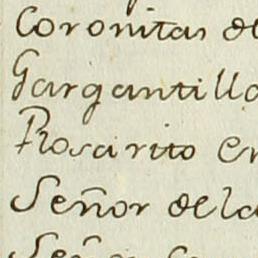 Coronitas de
Gargantilla
Rosarito en
Señor dela
Señor